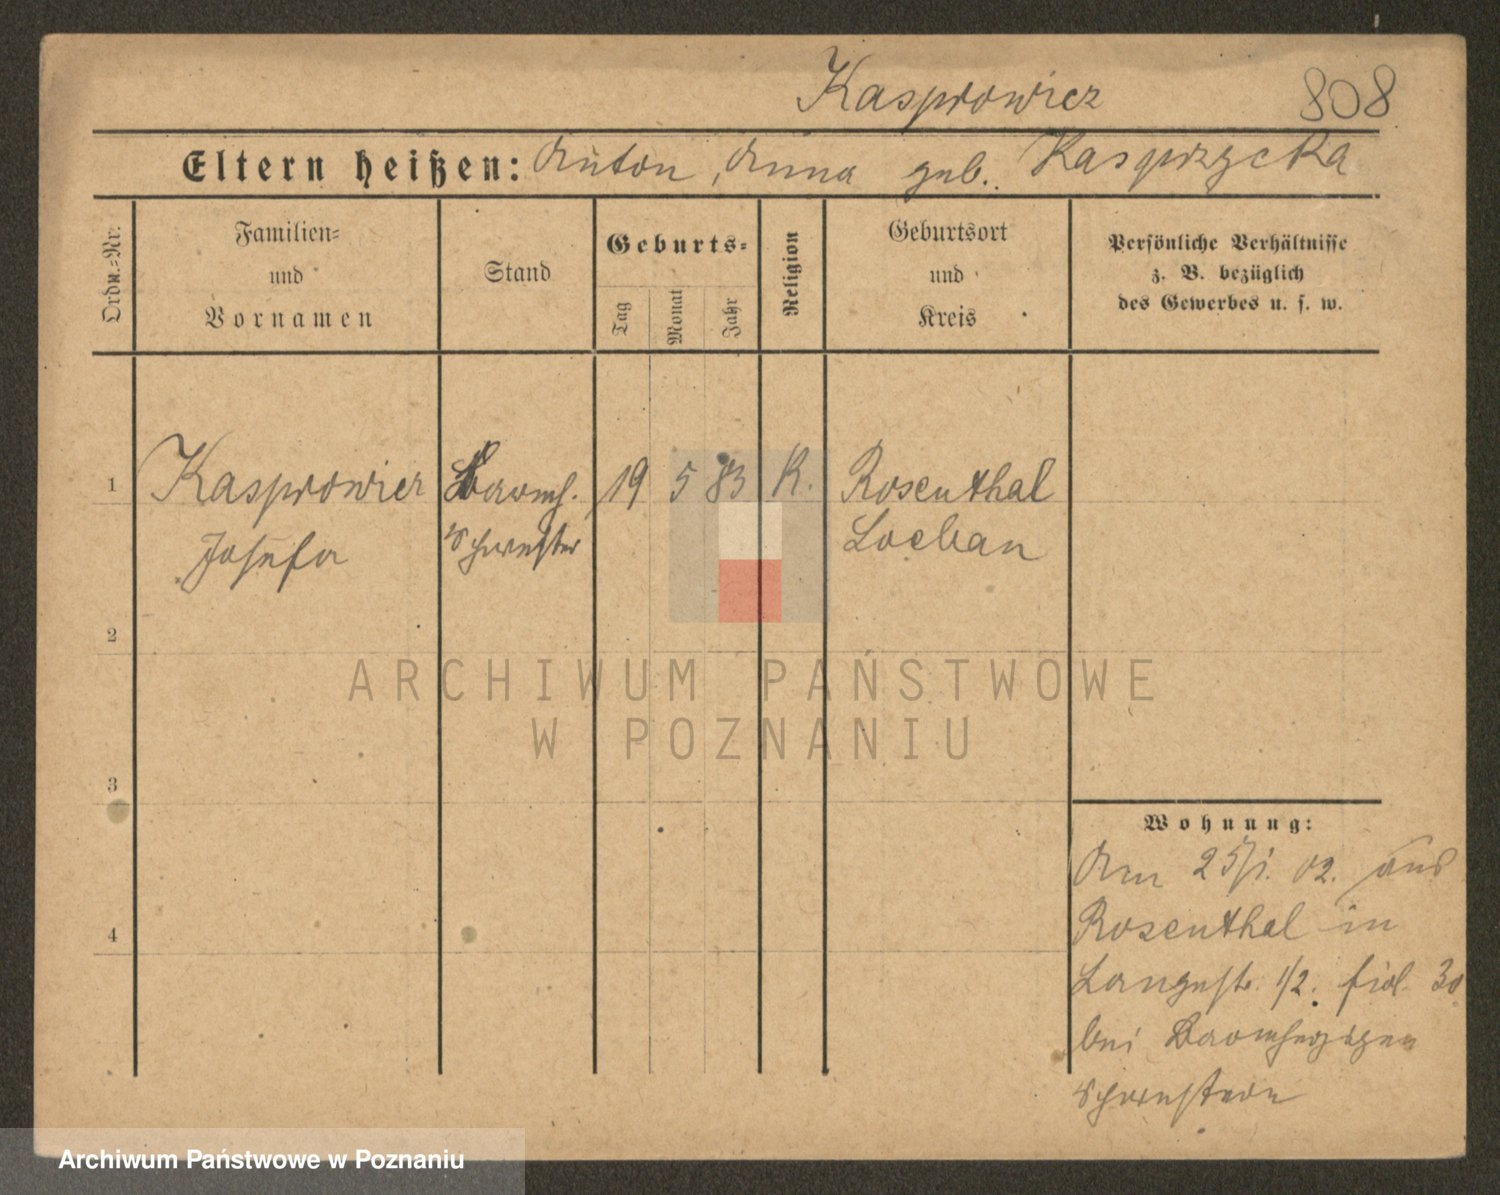 Kasprowicz 808
Eltern heißen: Anton, Anna geb. Kasprzycka
Ordn.=Nr.
Familien=
und
Vornamen
Stand
Geburts=
Tag
Monat
Jahr
Religion
Geburtsort
und
Kreis
Persönliche Verhältnisse
z. B. bezüglich
des Gewerbes u. s. w.
1 Kasprowicz Barmh. 19 5 83 K. Rosenthal
Josefa Schwester Loebau
2
3
4
Wohnung:
Am 25/1. 02. aus
Rosenthal in
Langestr. 1/2. 30
bei Barmherzigen
Schwestern
ARCHIWUM PAŃSTWOWE
W POZNANIU
Archiwum Państwowe w Poznaniu